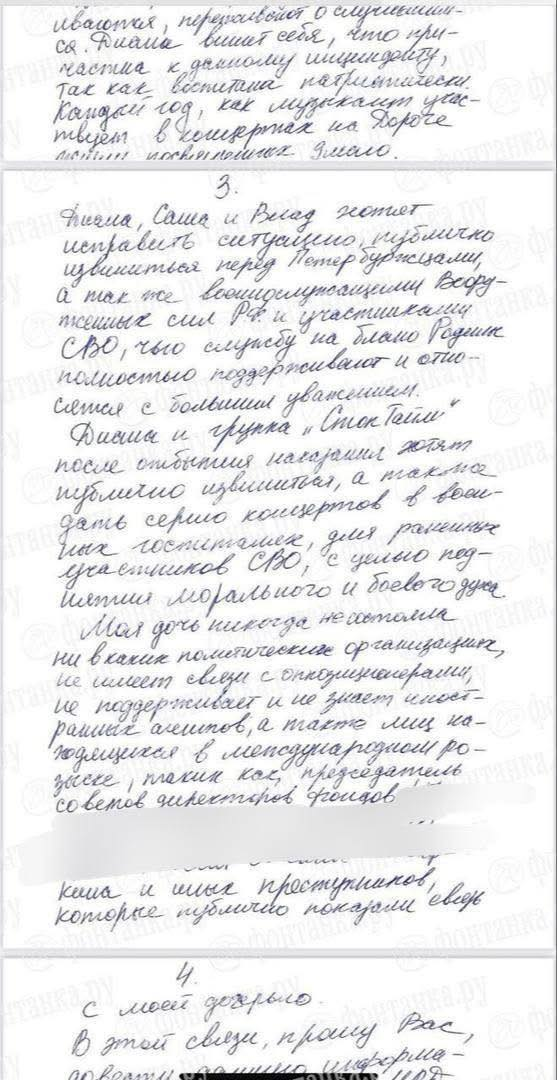 иваются, переживают о случившим-
ся. Диана винит себя, что при-
частна к данному инциденту,
так как воспитана патриотически.
Каждый год, как музыкант участ-
твует в концертах на Дороге
жизни посвященных
3.
Диана, Саша и Влад хотят
исправить ситуацию, публично
извиниться перед Петербуржцами,
а так же военнослужащими Воору-
женных сил РФ и участниками
СВО, чью службу на благо Родины
полностью поддерживают и отно-
сятся с большим уважением.
Диана и группа „Стоп Тайм"
после отбытия наказания хотят
публично извиниться, а также
дать серию концертов в воен-
ных госпиталях, для раненных
участников СВО, с целью под-
нятия морального и боевого духа.
Моя дочь никогда не состояла
ни в каких политических организациях,
не имеет связи с оппозиционерами,
не поддерживает и не знает иност-
ранных агентов, а также лиц на-
ходящихся в международном ро-
зыске, таких как, председатель
советов директоров фондов
каша и иных преступников,
которые публично показали связь
4.
с моей дочерью.
В этой связи, прошу Вас,
довести данную информа-
фонтанка.ру